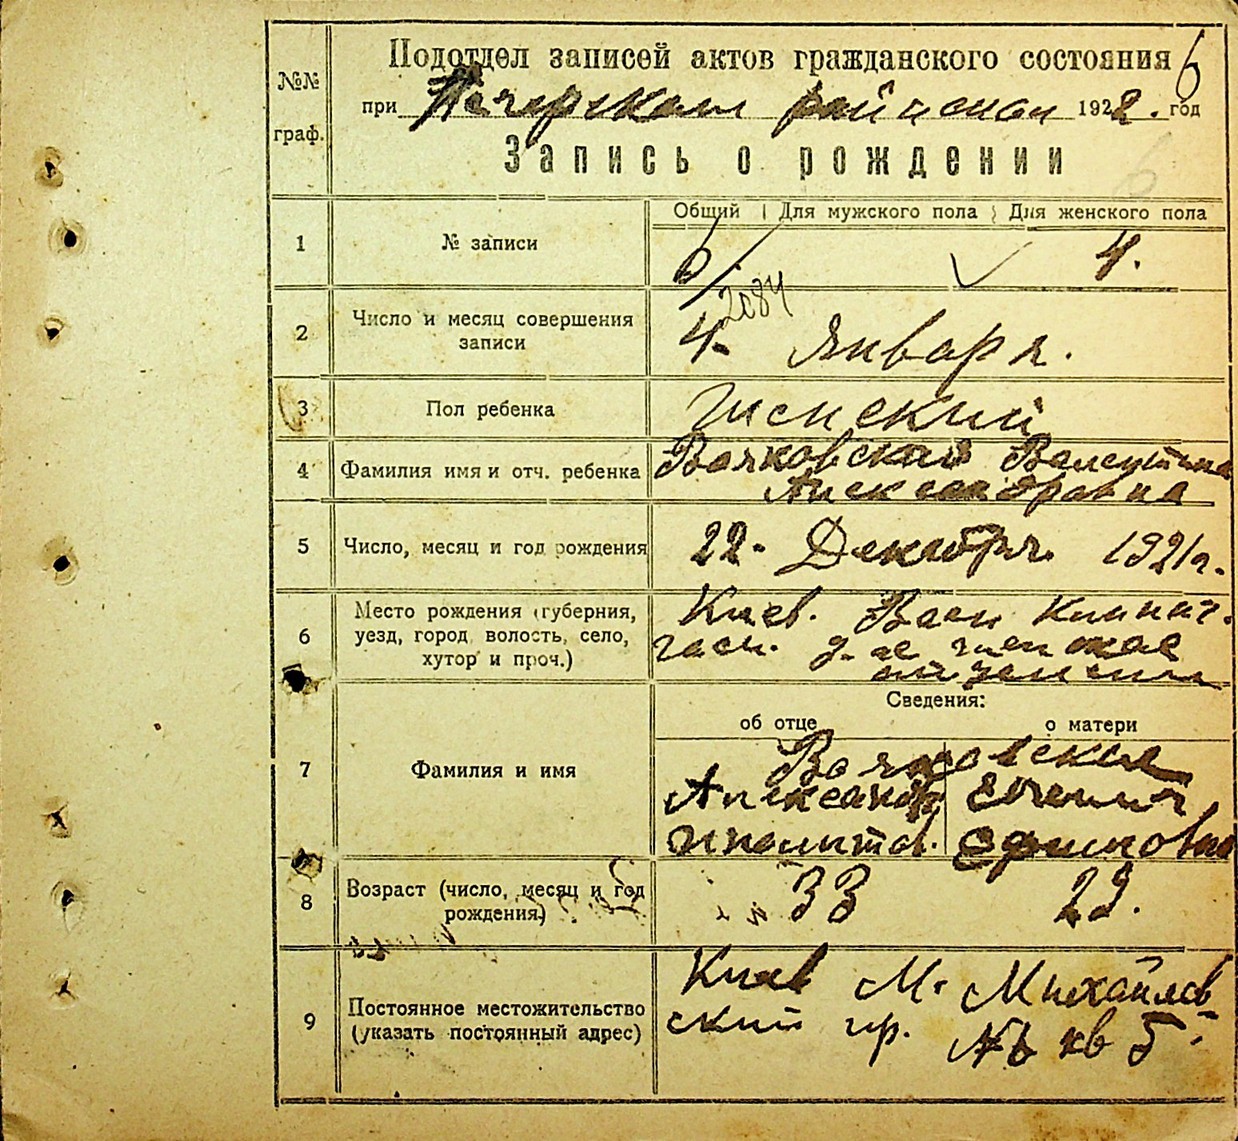 Подотдел записей актов гражданского состояния 6
№№ граф.
при Печерском 1922. год
Запись о рождении
Общий Для мужского пола Для женского пола
1 № записи 6 4.
2084
2 Число и месяц совершения записи 4. Января.
3 Пол ребенка Женский
4 Фамилия имя и отч. ребенка Валентина
Александровна
5 Число, месяц и год рождения 22. Декабря 1921г.
6 Место рождения (губерния, Киев.
уезд, город, волость, село,
хутор и проч.)
Сведения:
об отце о матери
7 Фамилия и имя
Александр Евгения
Иполитов. Ефимовна
8 Возраст (число, месяц и год рождения) 33 23.
9 Постоянное местожительство Киев М. Михайлов
(указать постоянный адрес) ский пр. кв 5